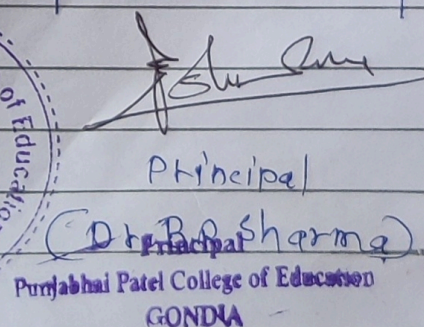 of Education
Principal
(Dr. B. D. Sharma)
Principal
Punjabhai Patel College of Education
GONDIA